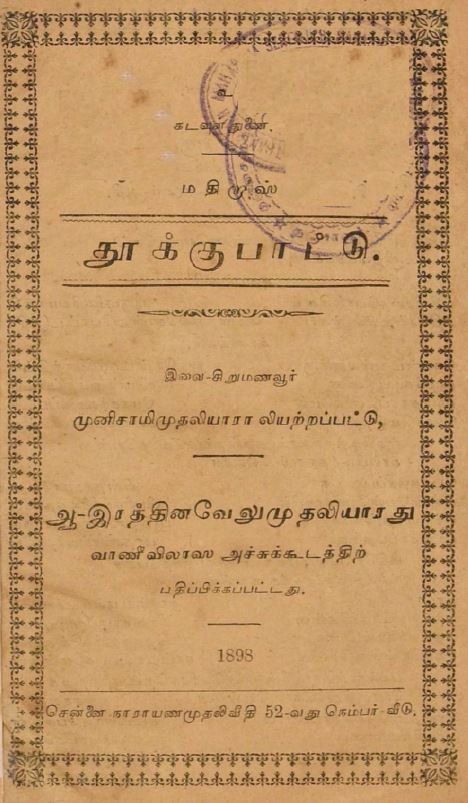 உ
கடவுள் துணை.
மதிமூஸ்
தூக்குபாட்டு.
இவை-சிறுமணவூர்
முனிசாமிமுதலியாரா லியற்றப்பட்டு,
ஆ-இரத்தினவேலுமுதலியாரது
வாணீவிலாஸ அச்சுக்கூடத்திற்
பதிப்பிக்கப்பட்டது.
1898
சென்னை நாராயணமுதலிவீதி 52-வது நெம்பர் வீடு.